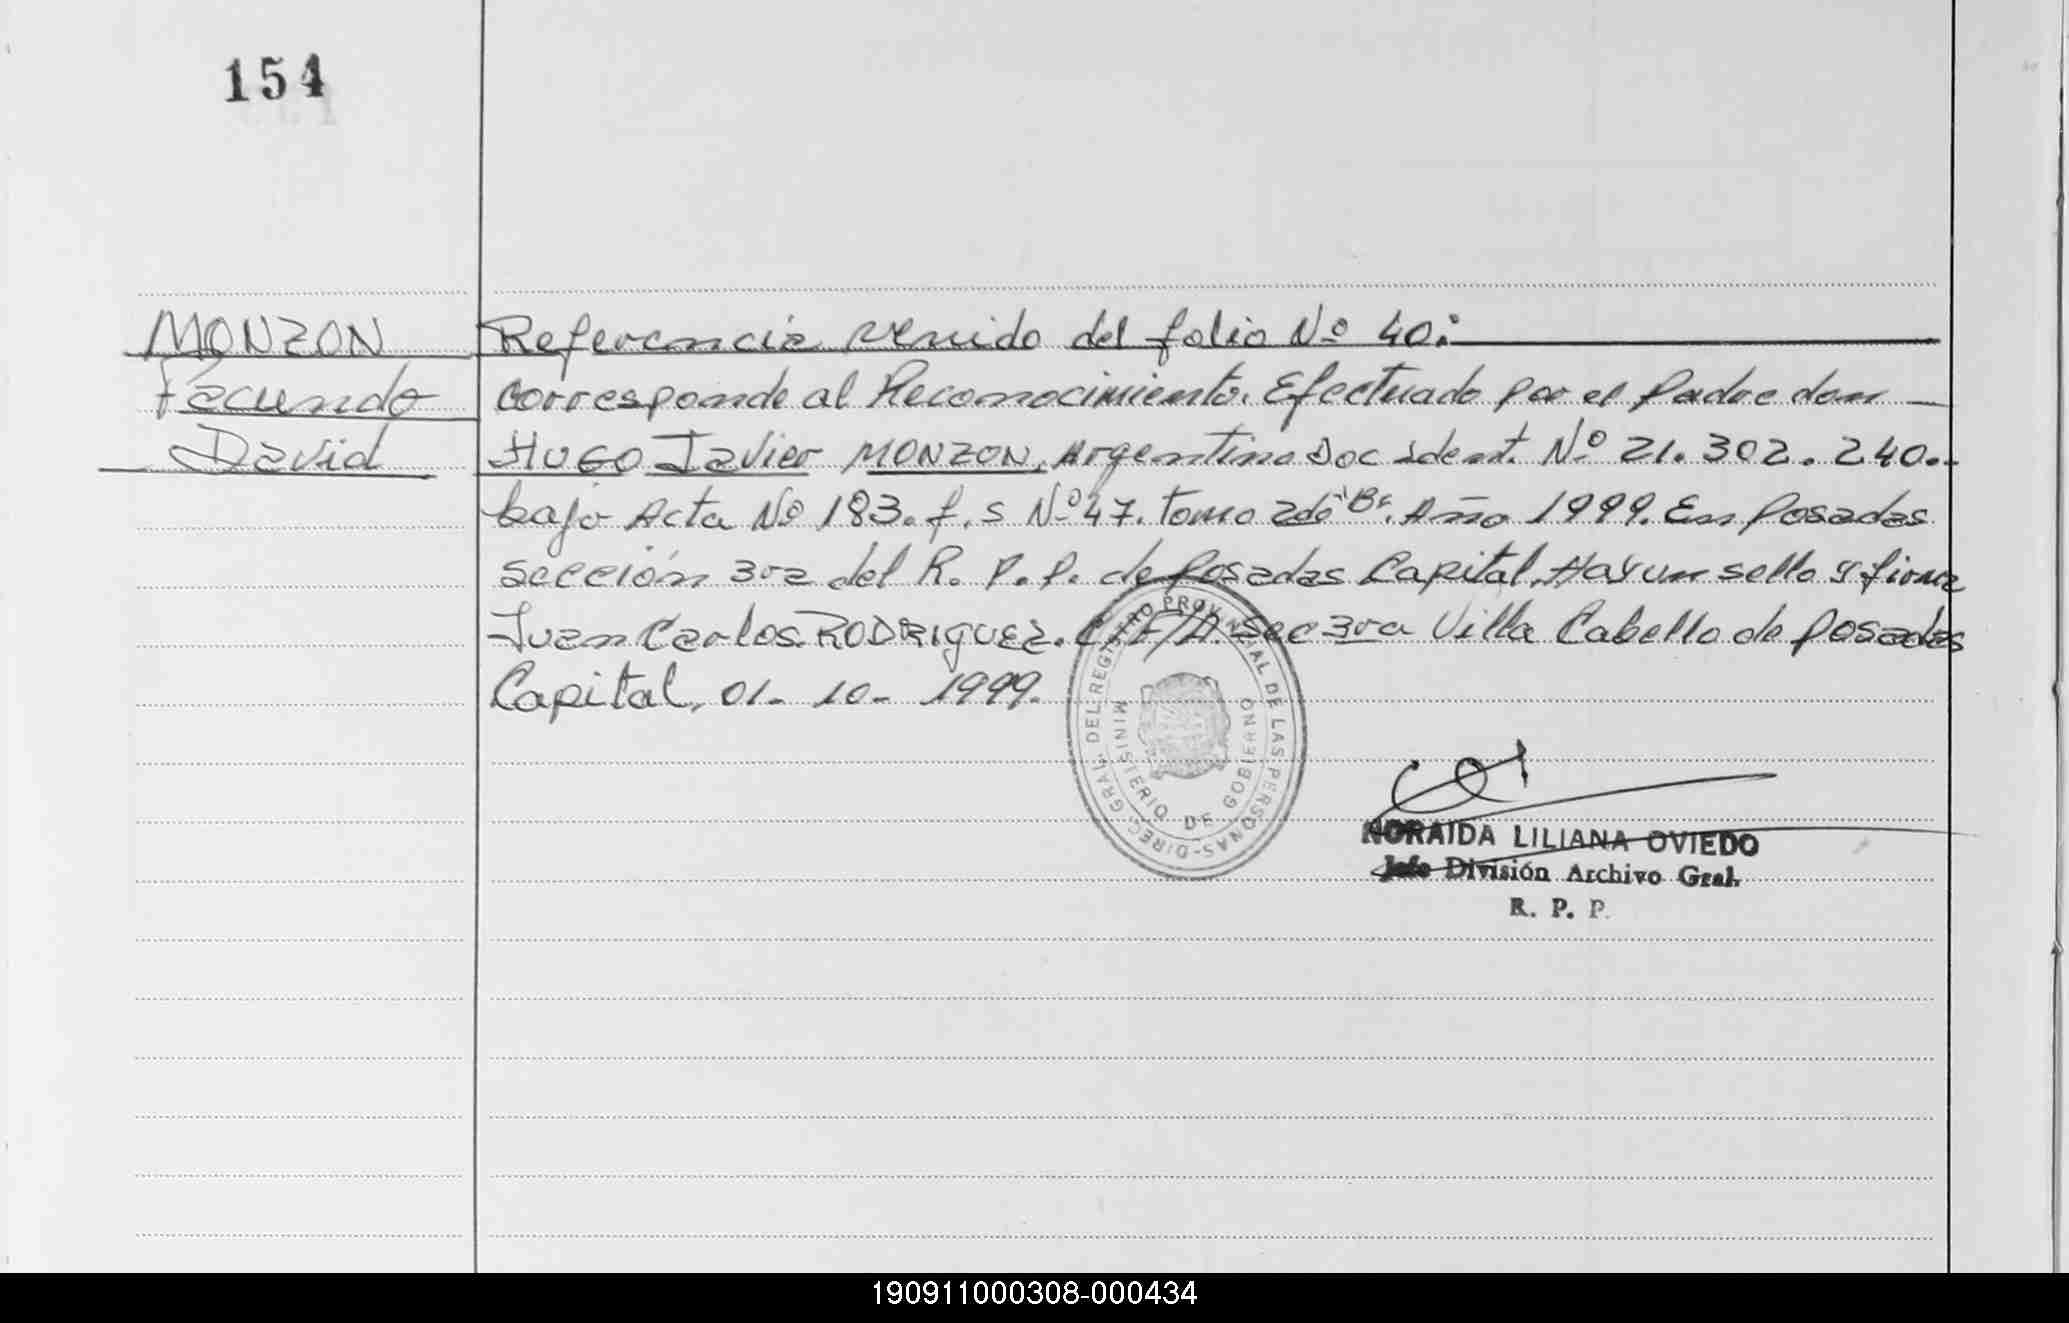 154
MONZON
Facundo
David
Referencia venido del folio Nº 40:
corresponde al Reconocimiento. Efectuado por el Padre don
Hugo Javier MONZON, Argentino Doc ident. Nº 21.302.240.-
bajo Acta Nº 183. f.s Nº 47. tomo 2do "B". Año 1999. En Posadas
sección 3ra del R. P. P. de Posadas Capital. Hay un sello y firma
Juan Carlos RODRIGUEZ. Sec 3ra Villa Cabello de Posadas
Capital, 01- 10- 1999.
DIREC. GRAL. DEL REGISTRO PROVINCIAL DE LAS PERSONAS
MINISTERIO DE GOBIERNO
NORAIDA LILIANA OVIEDO
Jefe División Archivo Gral.
R. P. P.
190911000308-000434